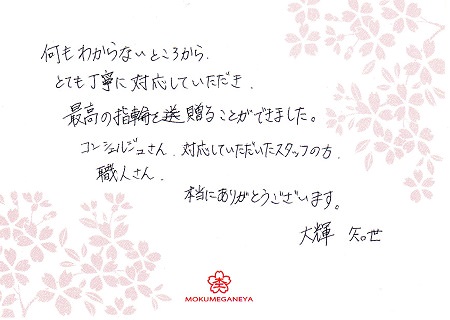 何もわからないところから、
とても丁寧に対応していただき、
最高の指輪を送贈ることができました。
コンシェルジュさん、対応していただいたスタッフの方、
職人さん、
本当にありがとうございます。
大輝 知世
MOKUMEGANEYA